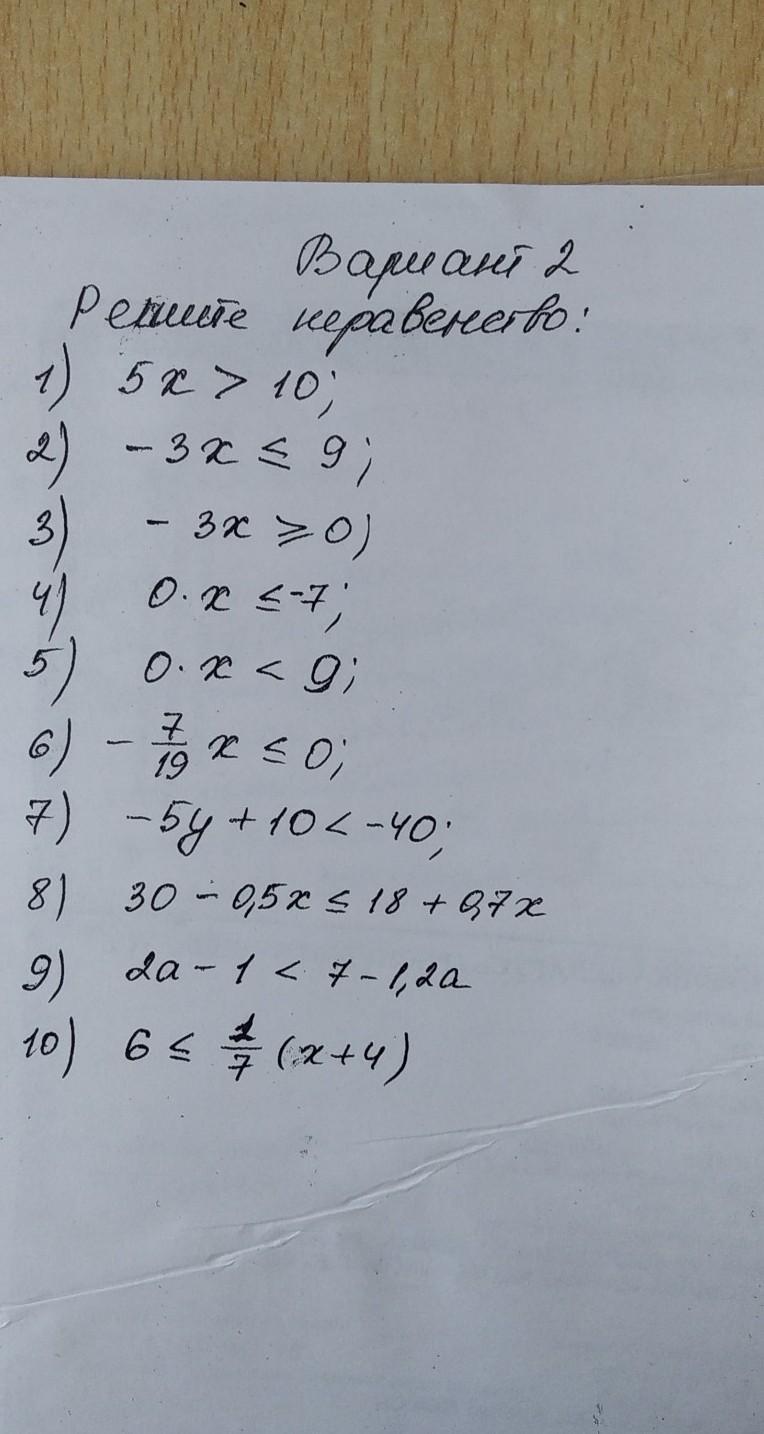 Вариант 2
Решите неравенство:
1) 5x > 10;
2) - 3x ≤ 9;
3) - 3x ⩾ 0)
4) 0 · x ≤ -7;
5) 0 · x < 9;
6) - 7/19 x ≤ 0;
7) -5y + 10 < -40;
8) 30 - 0,5x ≤ 18 + 0,7x
9) 2a - 1 < 7 - 1,2a
10) 6 ≤ /7 (x+4)